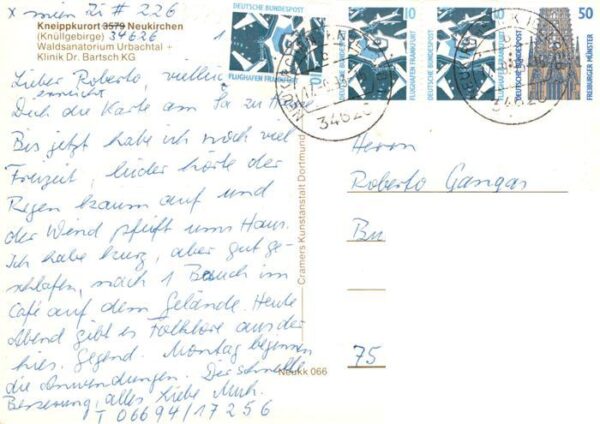 x mein Zi # 226
Kneippkurort 3579 Neukirchen
(Knüllgebirge) 34626 1
Waldsanatorium Urbachtal +
Klinik Dr. Bartsch KG
Lieber Roberto,
erreicht
Dich die Karte am Sa zu Hause
Bis jetzt habe ich noch viel
Freizeit, leider hörte der
Regen kaum auf und
der Wind pfeift ums Haus.
Ich habe kurz, aber gut ge-
schlafen, nach 1 Besuch im
Café auf dem Gelände. Heute
Abend gibt es Folklore aus der
hies. Gegend. Montag beginnen
die Anwendungen.
Besserung, alles Liebe
T 06694/17256
Neukk 066
Cramers Kunstanstalt Dortmund
DEUTSCHE BUNDESPOST
FLUGHAFEN FRANKFURT
10
DEUTSCHE BUNDESPOST
FLUGHAFEN FRANKFURT
10
DEUTSCHE BUNDESPOST
FLUGHAFEN FRANKFURT
10
DEUTSCHE BUNDESPOST
FREIBURGER MÜNSTER
50
34626
34626
Herrn
Roberto Gangas
Bu
75